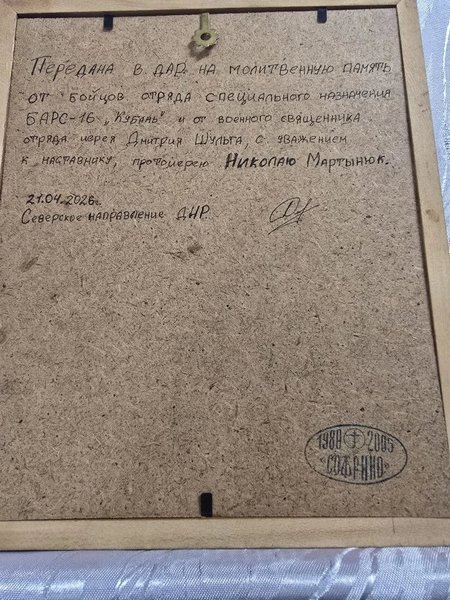 Передана в дар на молитвенную память
от бойцов отряда специального назначения
БАРС-16 „Кубань" и от военного священника
отряда иерея Дмитрия Шульга, с уважением
к наставнику, протоиерею Николаю Мартынюк.
21.04.2026г.
Северское направление ДНР
1980 2005
«СОФРИНО»